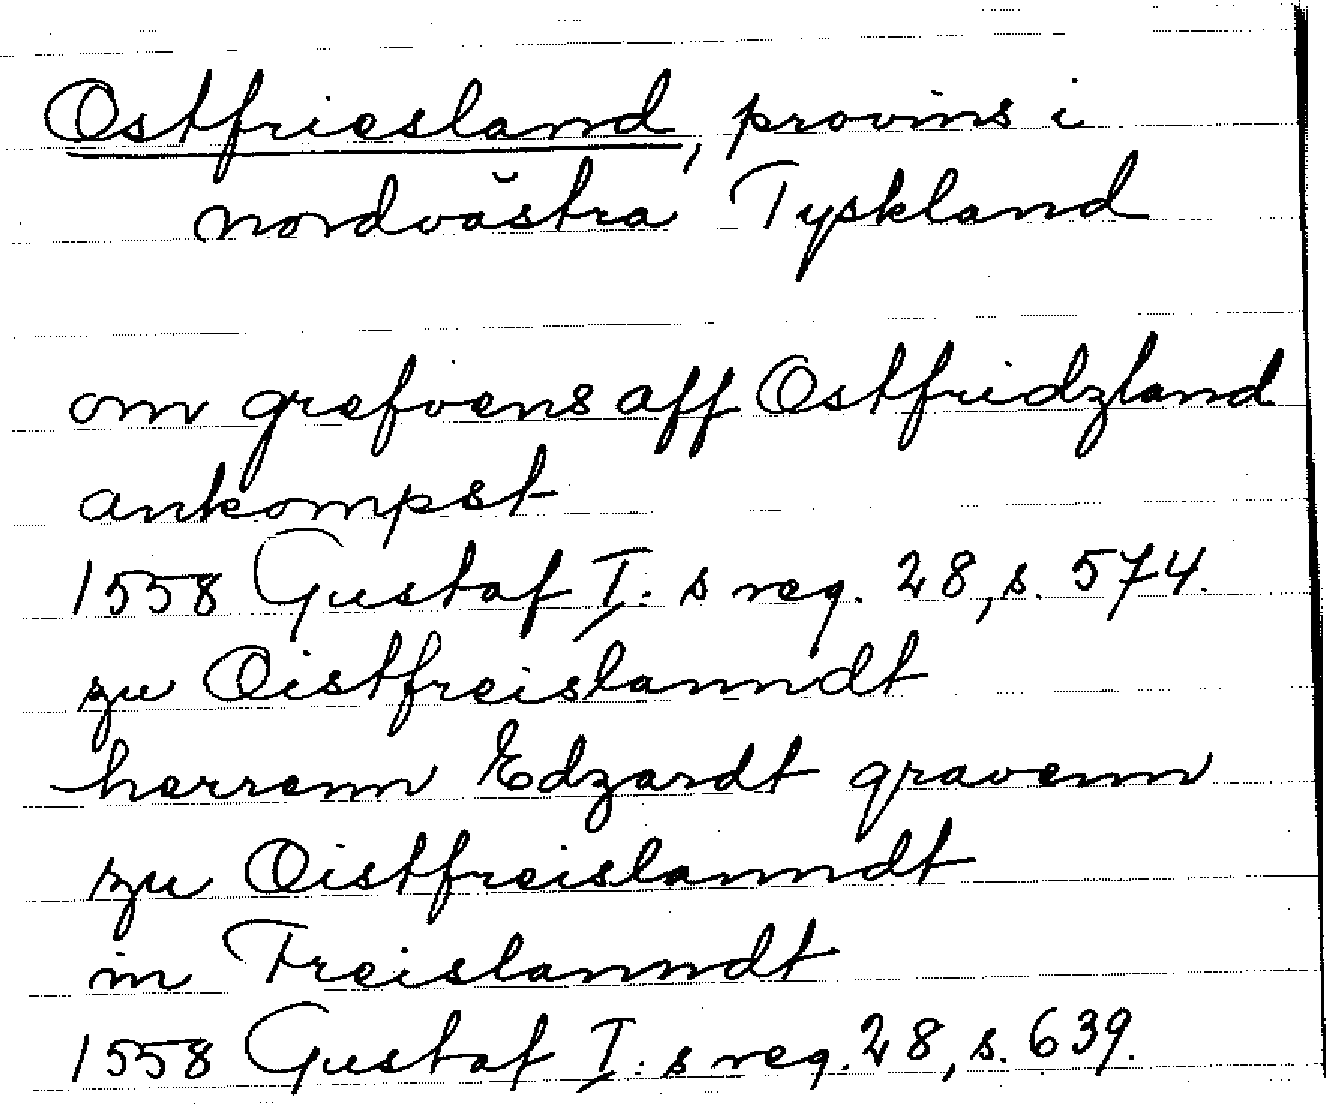 Ostfriesland, provins i
nordvästra Tyskland
om grefvens aff Ostfridzland
ankompst
1558 Gustaf I:s reg. 28, s. 574.
zu Oistfreislanndt
herrenn Edzardt gravenn
zu Oistfreislanndt
in Freislanndt
1558 Gustaf I:s reg. 28, s. 639.